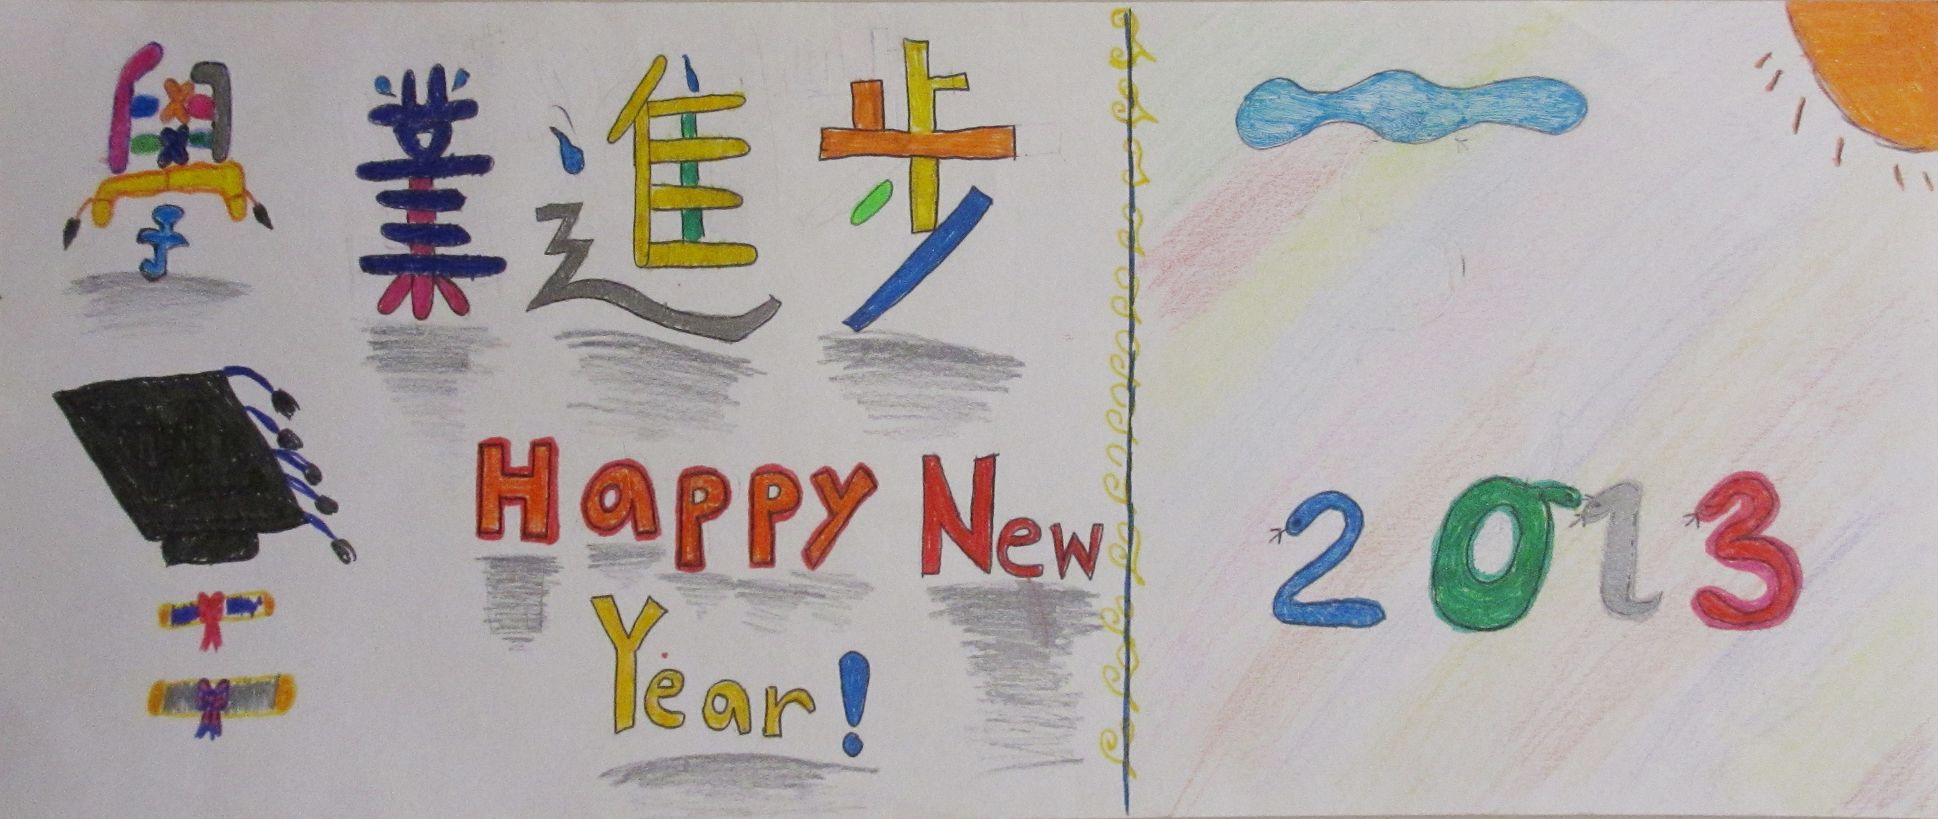 學業進步
Happy New
Year!
2013